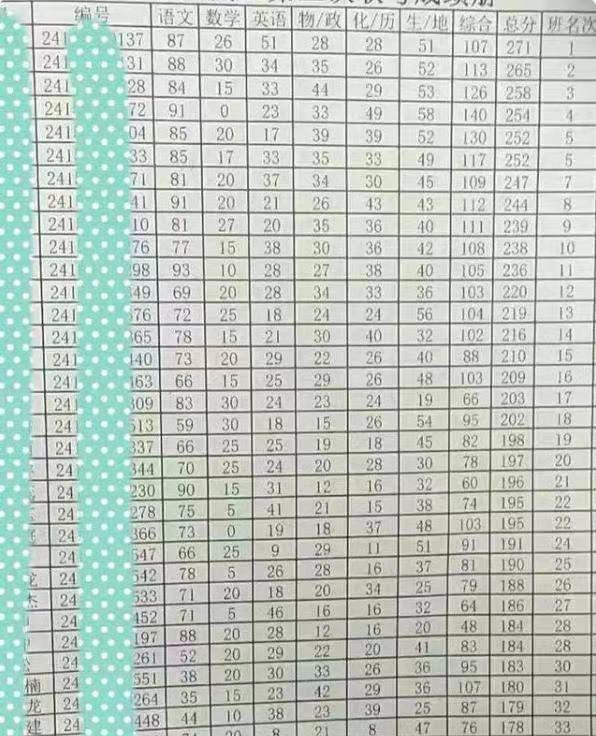 编号 语文 数学 英语 物/政 化/历 生/地 综合 总分 班名次
241 137 87 26 51 28 28 51 107 271 1
241 31 88 30 34 35 26 52 113 265 2
241 28 84 15 33 44 29 53 126 258 3
241 72 91 0 23 33 49 58 140 254 4
241 04 85 20 17 39 39 52 130 252 5
241 33 85 17 33 35 33 49 117 252 5
241 71 81 20 37 34 30 45 109 247 7
241 41 91 20 21 26 43 43 112 244 8
241 10 81 27 20 35 36 40 111 239 9
241 76 77 15 38 30 36 42 108 238 10
241 98 93 10 28 27 38 40 105 236 11
241 49 69 20 28 34 33 36 103 220 12
241 76 72 25 18 24 24 56 104 219 13
241 65 78 15 21 30 40 32 102 216 14
241 140 73 20 29 22 26 40 88 210 15
241 163 66 15 25 29 26 48 103 209 16
241 309 83 30 24 23 24 19 66 203 17
241 513 59 30 18 15 26 54 95 202 18
241 337 66 25 25 19 18 45 82 198 19
24 344 70 25 24 20 28 30 78 197 20
24 230 90 15 31 12 16 32 60 196 21
24 278 75 5 41 21 15 38 74 195 22
24 366 73 0 19 18 37 48 103 195 22
24 547 66 25 9 29 11 51 91 191 24
龙 24 542 78 5 26 28 16 37 81 190 25
杰 24 533 71 20 18 20 34 25 79 188 26
24 452 71 5 46 16 16 32 64 186 27
24 197 88 20 28 12 16 20 48 184 28
24 261 52 20 29 22 20 41 83 184 28
楠 24 551 38 20 30 33 26 36 95 183 30
龙 24 264 35 15 23 42 29 36 107 180 31
建 24 448 44 10 38 23 39 25 87 179 32
20 8 21 8 47 76 178 33